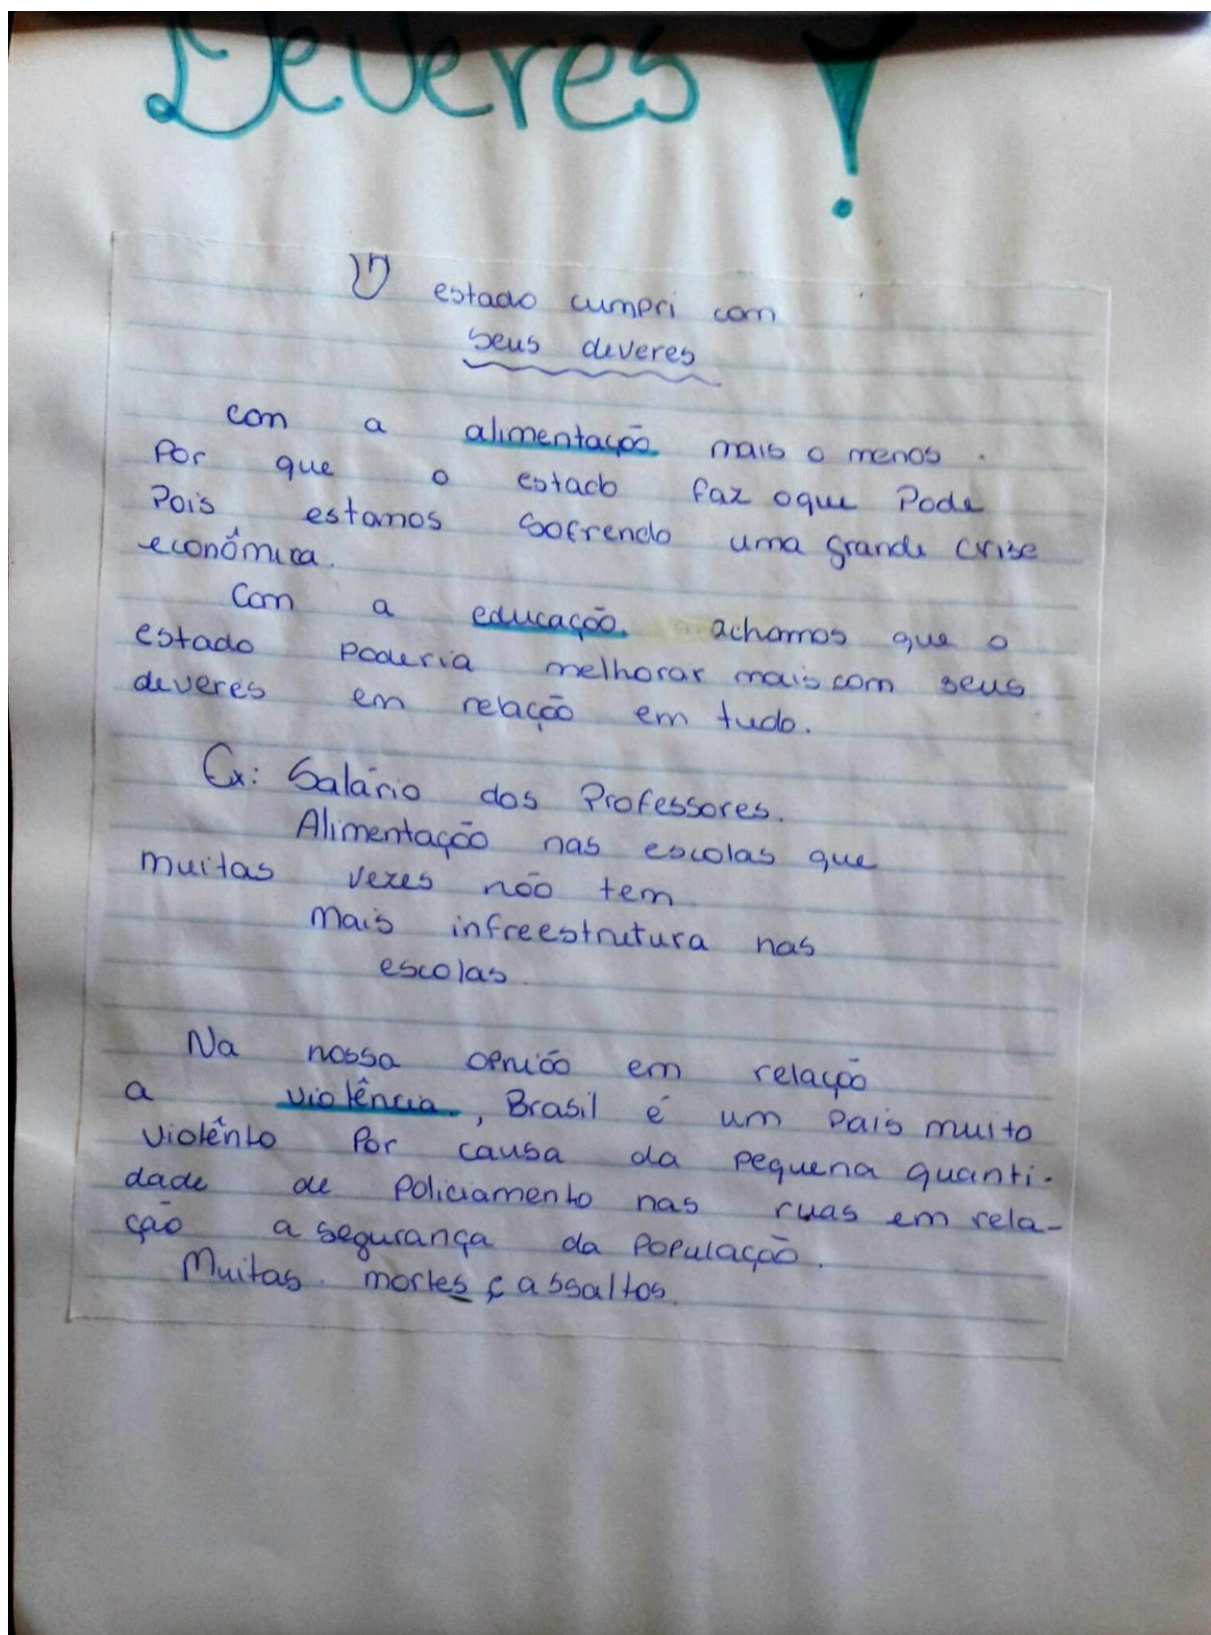 Deveres !
O estado cumpri com
seus deveres
com a alimentação mais o menos.
Por que o estado faz oque Pode
Pois estamos sofrendo uma grande crise
econômica.
Com a educação. achamos que o
estado Poderia melhorar mais com seus
deveres em relação em tudo.
Ex: Salário dos Professores.
Alimentação nas escolas que
muitas vezes não tem
Mais infreestrutura nas
escolas.
Na nossa opnião em relação
a violência, Brasil é um País muito
violênto Por causa da pequena quanti-
dade de Policiamento nas ruas em rela-
ção a segurança da População.
Muitas mortes e assaltos.